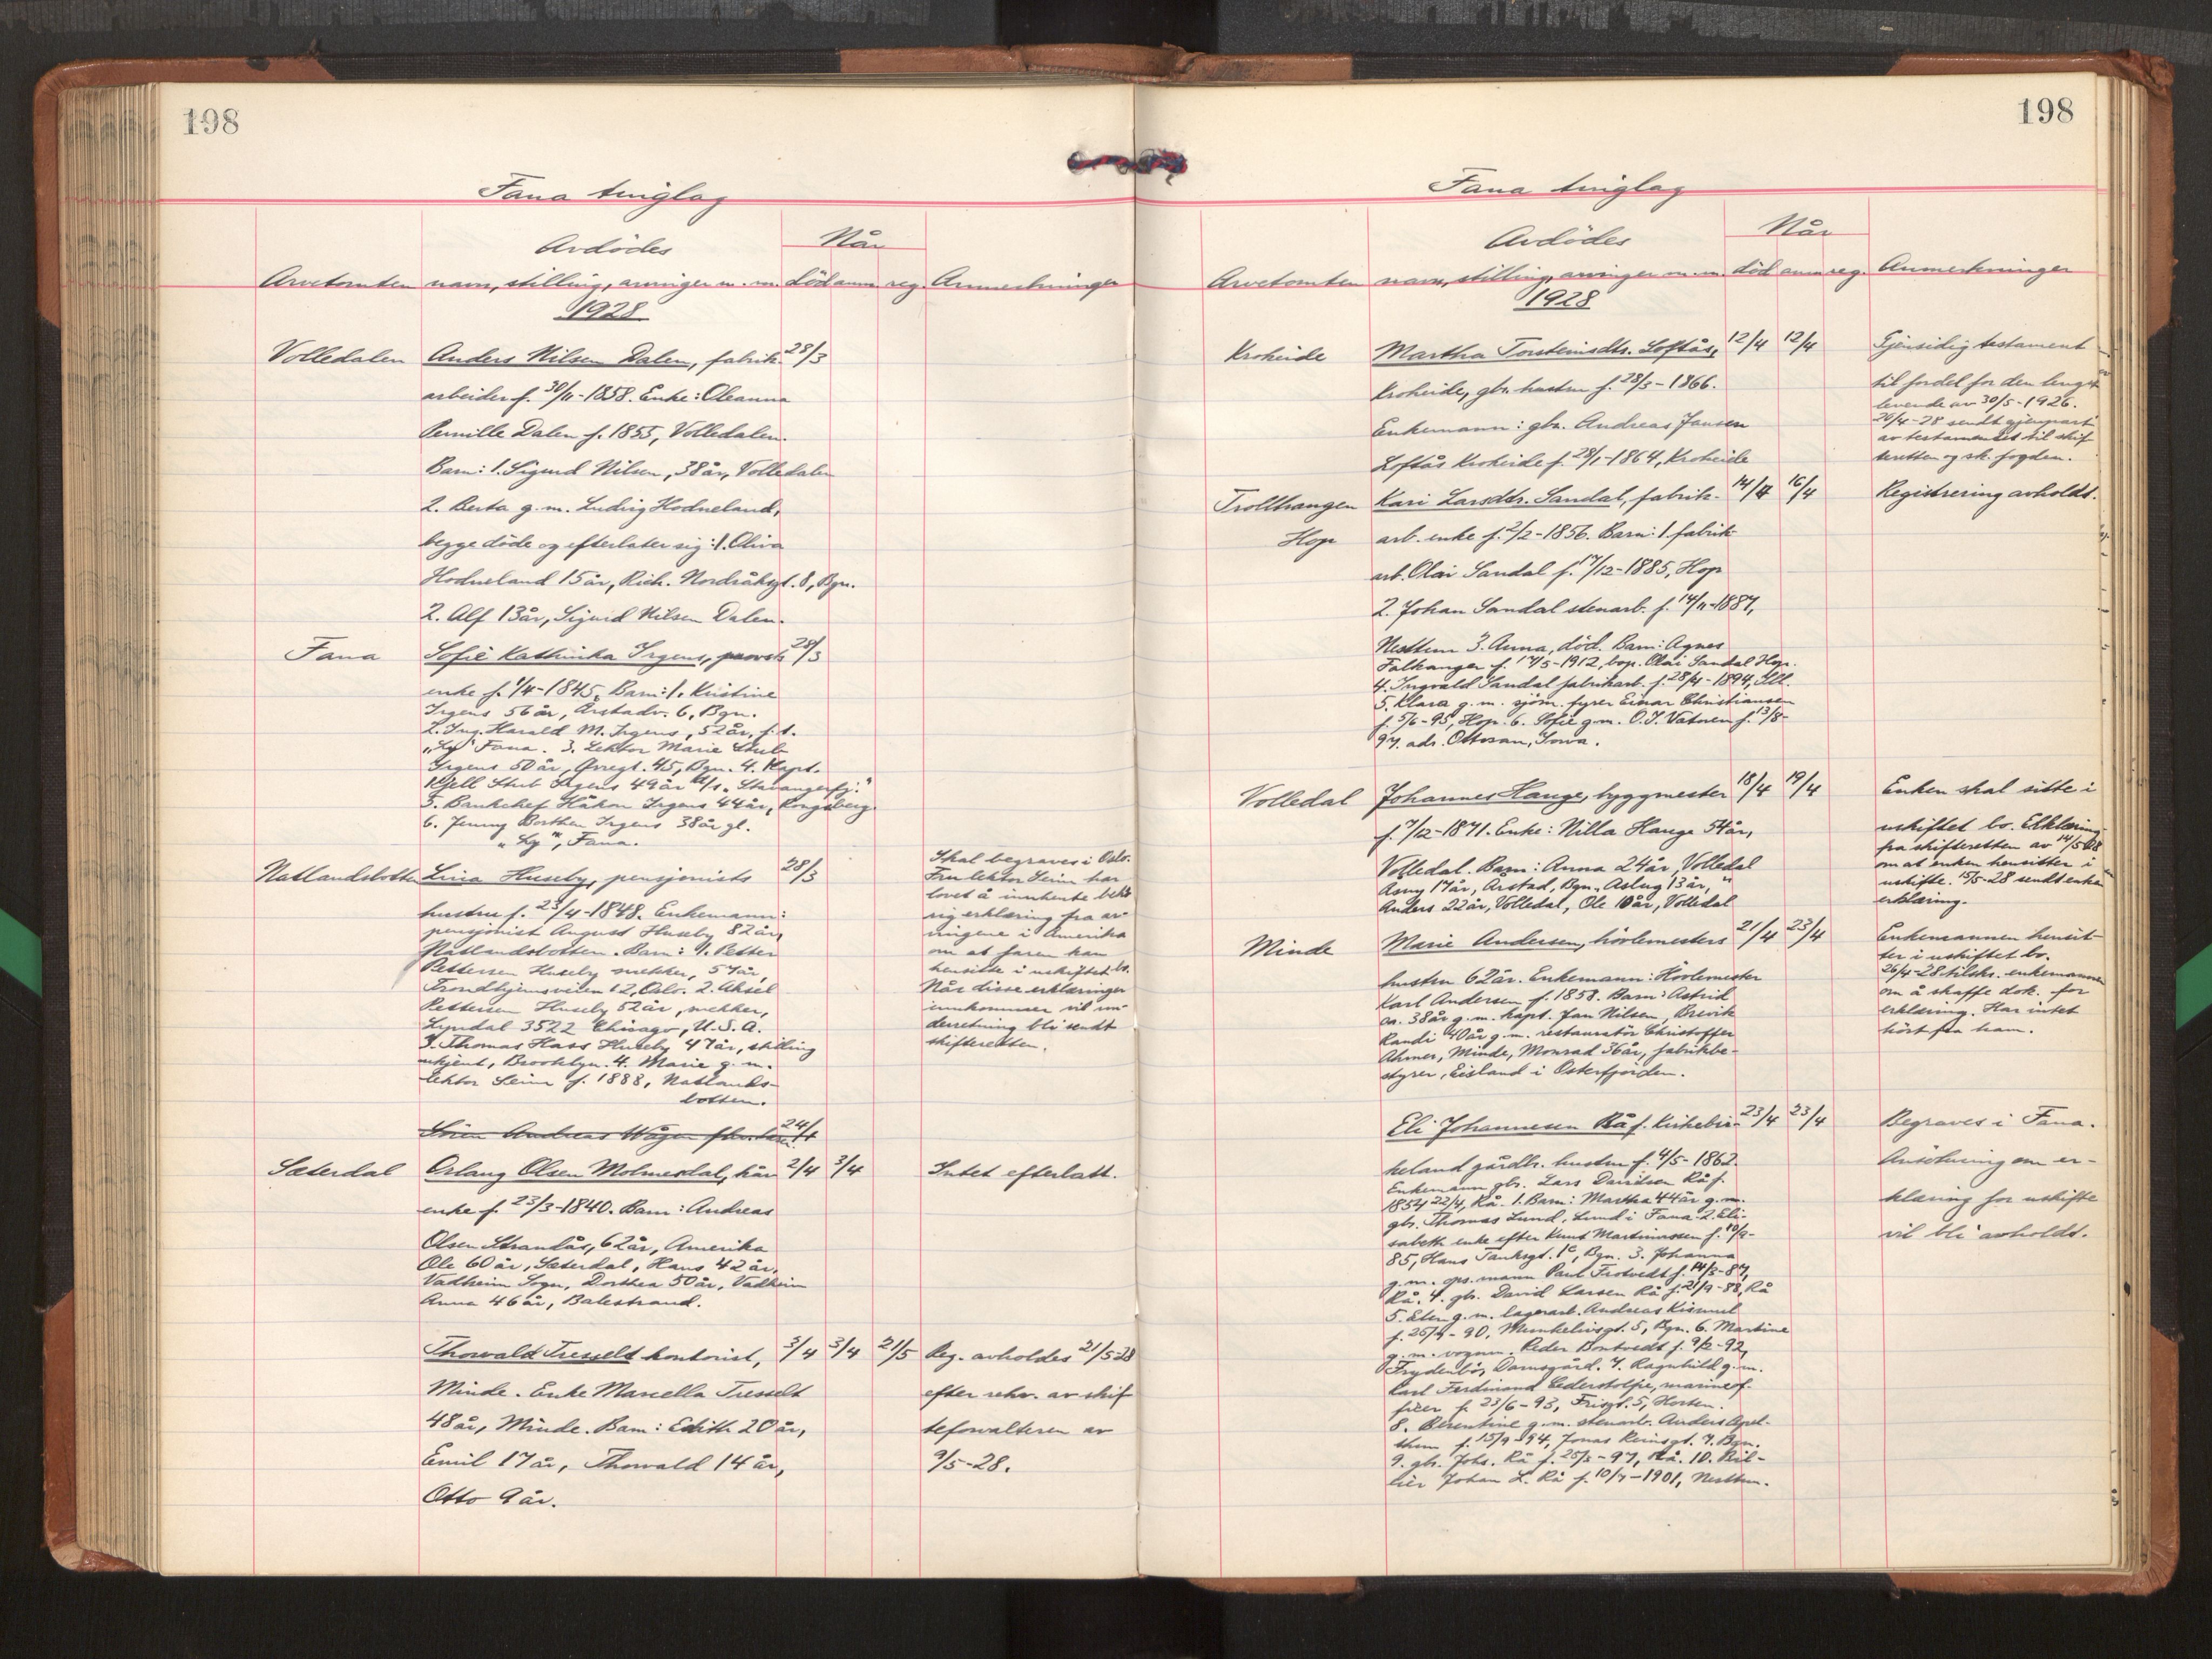 198
Fana tinglag
Avdödes
Når
Arvetomten navn, stilling, arvinger m. m. död anm reg. Anmerkninger
1928
Volledalen Anders Nilsen Dalen, fabrik- 28/3
arbeider f. 30/11-1858. Enke: Oleanna
Pernille Dalen f. 1855, Volledalen.
Barn: 1. Sigurd Nilsen, 38 år, Volledalen
2. Berta g. m. Ludvig Hodneland,
begge döde og efterlater sig: 1. Oliva
Hodneland 15 år, Rich. Nordråksgt. 8, Bgn.
2. Alf 13 år, Sigurd Nilsen Dalen.
Fana Sofie Kathinka Irgens, provsts 28/3
enke f. 1/4-1845. Barn: 1. Kristine
Irgens 56 år, Årstadv. 6, Bgn.
2. Ing. Harald M. Irgens, 52 år, f.t.
"Ly" Fana. 3. Lektor Marie Stub
Irgens 50 år, 45, Bgn. 4. Kapt.
Kjell Stub Irgens 49 år "Stavangerfj."
5. Bankchef Håkon Irgens 44 år, Kongsberg.
6. Jenny Borthen Irgens 38 år gl.
"Ly", Fana.
Natlandsbotten Lina Huseby, pensjonists 28/3
hustru f. 23/4-1848. Enkemann:
pensjonist August Huseby 82 år,
Natlandsbotten. Barn: 1. Petter
Pettersen Huseby snekker, 57 år,
Trondhjemsveien 12, Oslo. 2. Aksel
Pettersen Huseby 52 år, snekker,
Lyndal 3522 Chicago, U.S.A.
3. Thomas Hass Huseby 47 år, stilling
ukjent, Brooklyn. 4. Marie g. m.
lektor Seim f. 1888, Natlands-
botten.
Skal begraves i Oslo.
Fru lektor Seim har
lovet å innhente
erklæring fra ar-
vingene i Amerika
om at faren kan
hensitte i uskiftet bo.
Når disse erklæringer
innkommer vil un-
derretning bli sendt
skifteretten.
Sören Andreas Wågen 24/4
Sæterdal Orlaug Olsen Molmesdal, 2/4 3/4 Intet efterlatt.
enke f. 23/3-1840. Barn: Andreas
Olsen Strandås, 62 år, Amerika
Ole 60 år, Sæterdal, Hans 42 år,
Vadheim Sogn, Dorthea 50 år, Vadheim
Anna 46 år, Balestrand.
Thorvald Tresselt kontorist, 3/4 3/4 21/5 Reg. avholdes 21/5 28
Minde. Enke Marcella Tresselt efter rekv. av skif
48 år, Minde. Barn: Edith 20 år, teforvalteren av
Emil 17 år, Thorvald 14 år, 9/5-28.
Otto 9 år.
198
Fana tinglag
Avdödes
Når
Arvetomten navn, stilling, arvinger m. m. död anm reg. Anmerkninger
1928
Kroheide Martha Torsteinsdtr. Loftås, 12/4 12/4
Kroheide, gbr. hustru f. 28/3-1866.
Enkemann: gbr. Andreas Jansen
Loftås Kroheide f. 28/1-1864, Kroheide
Gjensidig testament
til fordel for den lengst
levende av 30/5-1926.
26/4-28 sendt gjenpart
av testamentet til skif
teretten og sk. fogden.
Trollhaugen Kari Larsdtr. Sandal, fabrik- 14/4 16/4 Registrering avholdt.
Hop arb. enke f. 2/2-1856. Barn: 1. fabrik
arb. Olai Sandal f. 17/12-1885, Hop
2. Johan Sandal stenarb. f. 14/11-1887,
Nesttun 3. Anna, död. Barn: Agnes
Falkanger f. 17/5-1912, bop. Olai Sandal Hop.
4. Ingvald Sandal fabrikarb. f. 28/4-1894,
5. Klara g. m. sjöm. fyrer Einar Christiansen
f. 5/6-95, Hop. 6. Sofie g. m. O. J. Vatnem f. 13/8-
97. adr. Ottosan, Iowa.
Volledal Johannes Hauge, byggmester 18/4 19/4
f. 7/12-1871. Enke: Nilla Hauge 54 år,
Volledal. Barn: Anna 24 år, Volledal
Asny 17 år, Årstad, Bgn. Aslug 13 år, "
Anders 22 år, Volledal, Ole 10 år, Volledal
Enken skal sitte i
uskiftet bo. Erklæring
fra skifteretten av 14/5 28
om at enken hensitter i
uskifte. 15/5-28 sendt enken
erklæring.
Minde Marie Andersen, hövlemesters 21/4 23/4
hustru 62 år. Enkemann: Hövlemester
Karl Andersen f. 1858. Barn: Astrid
ca. 38 år g. m. kapt. Jan Nilsen, Brevik
Randi 40 år g. m. restauratör Christoffer
Ahmer, Minde, Monrad 36 år, fabrikbe-
styrer, Eisland i Osterfjorden.
Enkemannen hensit-
ter i uskiftet bo.
26/4-28 tilskr. enkemannen
om å skaffe dok. for
erklæring. Har intet
hört fra ham.
Eli Johannesen Rå f. Kirkebir- 23/4 23/4
keland gårdbr. hustru f. 4/5-1862.
Enkemann gbr. Lars Davidsen Rå f.
1854 22/4, Rå. 1. Barn: Martha 44 år g. m.
gbr. Thomas Lund, Lund i Fana. 2. Eli-
sabeth enke efter Knut Martinussen f. 10/9-
85, Hans Tanksgt. 1c, Bgn. 3. Johanna
g. m. ops. mann Paul Frotvedt f. 14/3-87,
Rå. 4. gbr. David Larsen Rå f. 21/9-88, Rå
5. Elen g. m. lagerarb. Andreas
f. 25/4-90, Munkelivsgt. 5, Bgn. 6. Martine
g. m. vognm. Peder Bontvedt f. 9/2-92,
Frydenbö, Damsgård. 7. Ragnhild g. m.
Karl Ferdinand Cederstolpe, marineof-
ficer f. 23/6-93, 5, Horten.
8. Berentine g. m. stenarb. Anders Apel-
thun f. 15/9-94, Jonas Reinsgt. 7, Bgn.
9. gbr. Johs. Rå f. 25/3-97, Rå. 10. Bil-
eier Johan L. Rå f. 10/7-1901, Nesttun.
Begraves i Fana.
Ansökning om er-
klæring for uskifte
vil bli avholdt.